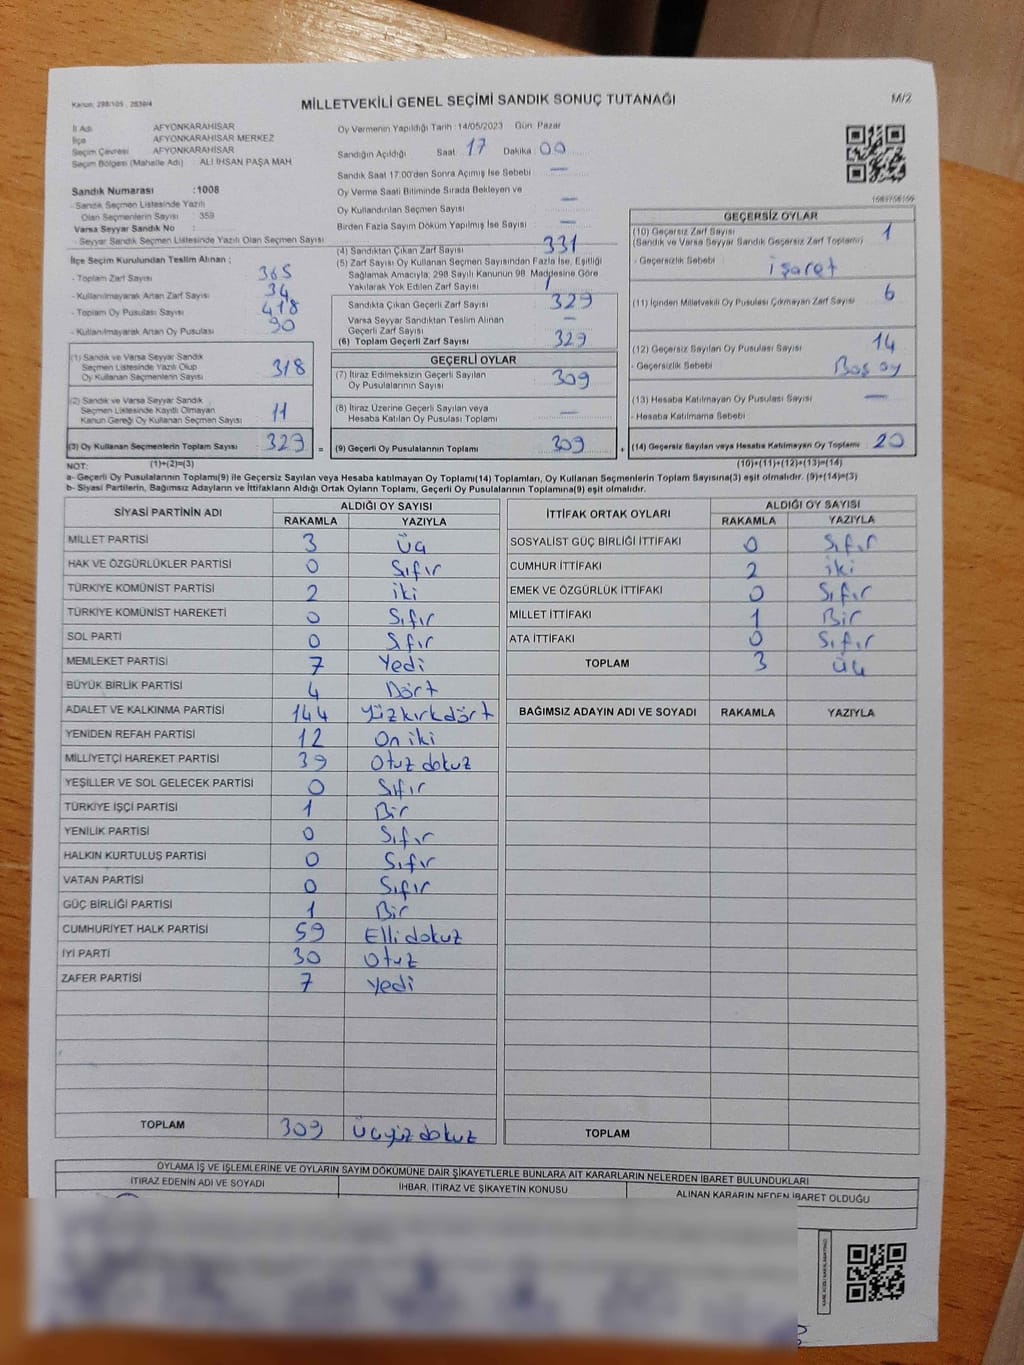 Kanun: 298/105 , 2839/4
MİLLETVEKİLİ GENEL SEÇİMİ SANDIK SONUÇ TUTANAĞI
M/2
İl Adı AFYONKARAHİSAR
İlçe AFYONKARAHİSAR MERKEZ
Seçim Çevresi AFYONKARAHİSAR
Seçim Bölgesi (Mahalle Adı) ALİ İHSAN PAŞA MAH
Sandık Numarası :1008
- Sandık Seçmen Listesinde Yazılı
Olan Seçmenlerin Sayısı 359
Varsa Seyyar Sandık No :
- Seyyar Sandık Seçmen Listesinde Yazılı Olan Seçmen Sayısı
İlçe Seçim Kurulundan Teslim Alınan ;
- Toplam Zarf Sayısı 365
- Kullanılmayarak Artan Zarf Sayısı 34
- Toplam Oy Pusulası Sayısı 418
- Kullanılmayarak Artan Oy Pusulası 90
(1) Sandık ve Varsa Seyyar Sandık
Seçmen Listesinde Yazılı Olup
Oy Kullanan Seçmenlerin Sayısı 318
(2) Sandık ve Varsa Seyyar Sandık
Seçmen Listesinde Kayıtlı Olmayan
Kanun Gereği Oy Kullanan Seçmen Sayısı 11
(3) Oy Kullanan Seçmenlerin Toplam Sayısı 329
Oy Vermenin Yapıldığı Tarih : 14/05/2023 Gün: Pazar
Sandığın Açıldığı Saat: 17 Dakika: 00
Sandık Saat 17:00'den Sonra Açımış İse Sebebi —
Oy Verme Saati Bitiminde Sırada Bekleyen ve
Oy Kullandırılan Seçmen Sayısı —
Birden Fazla Sayım Döküm Yapılmış İse Sayısı —
(4) Sandıktan Çıkan Zarf Sayısı 331
(5) Zarf Sayısı Oy Kullanan Seçmen Sayısından Fazla İse, Eşitliği
Sağlamak Amacıyla; 298 Sayılı Kanunun 98. Maddesine Göre
Yakılarak Yok Edilen Zarf Sayısı 1
Sandıkta Çıkan Geçerli Zarf Sayısı 329
Varsa Seyyar Sandıktan Teslim Alınan
Geçerli Zarf Sayısı —
(6) Toplam Geçerli Zarf Sayısı 329
GEÇERLİ OYLAR
(7) İtiraz Edilmeksizin Geçerli Sayılan
Oy Pusulalarının Sayısı 309
(8) İtiraz Üzerine Geçerli Sayılan veya
Hesaba Katılan Oy Pusulası Toplamı —
= (9) Geçerli Oy Pusulalarının Toplamı 309 +
GEÇERSİZ OYLAR
(10) Geçersiz Zarf Sayısı 1
(Sandık ve Varsa Seyyar Sandık Geçersiz Zarf Toplamı)
- Geçersizlik Sebebi işaret
(11) İçinden Milletvekili Oy Pusulası Çıkmayan Zarf Sayısı 6
(12) Geçersiz Sayılan Oy Pusulası Sayısı 14
- Geçersizlik Sebebi Boş oy
(13) Hesaba Katılmayan Oy Pusulası Sayısı —
- Hesaba Katılmama Sebebi
(14) Geçersiz Sayılan veya Hesaba Katılmayan Oy Toplamı 20
NOT: (1)+(2)=(3) (10)+(11)+(12)+(13)=(14)
a- Geçerli Oy Pusulalarının Toplamı(9) ile Geçersiz Sayılan veya Hesaba katılmayan Oy Toplamı(14) Toplamları, Oy Kullanan Seçmenlerin Toplam Sayısına(3) eşit olmalıdır. (9)+(14)=(3)
b- Siyasi Partilerin, Bağımsız Adayların ve İttifakların Aldığı Ortak Oyların Toplamı, Geçerli Oy Pusulalarının Toplamına(9) eşit olmalıdır.
SİYASİ PARTİNİN ADI ALDIĞI OY SAYISI
RAKAMLA YAZIYLA
MİLLET PARTİSİ 3 Üç
HAK VE ÖZGÜRLÜKLER PARTİSİ 0 Sıfır
TÜRKİYE KOMÜNİST PARTİSİ 2 iki
TÜRKİYE KOMÜNİST HAREKETİ 0 Sıfır
SOL PARTİ 0 Sıfır
MEMLEKET PARTİSİ 7 Yedi
BÜYÜK BİRLİK PARTİSİ 4 Dört
ADALET VE KALKINMA PARTİSİ 144 Yüzkırkdört
YENİDEN REFAH PARTİSİ 12 On iki
MİLLİYETÇİ HAREKET PARTİSİ 39 Otuz dokuz
YEŞİLLER VE SOL GELECEK PARTİSİ 0 Sıfır
TÜRKİYE İŞÇİ PARTİSİ 1 Bir
YENİLİK PARTİSİ 0 Sıfır
HALKIN KURTULUŞ PARTİSİ 0 Sıfır
VATAN PARTİSİ 0 Sıfır
GÜÇ BİRLİĞİ PARTİSİ 1 Bir
CUMHURİYET HALK PARTİSİ 59 Elli dokuz
İYİ PARTİ 30 Otuz
ZAFER PARTİSİ 7 Yedi
TOPLAM 309 Üçyüz dokuz
İTTİFAK ORTAK OYLARI ALDIĞI OY SAYISI
RAKAMLA YAZIYLA
SOSYALİST GÜÇ BİRLİĞİ İTTİFAKI 0 Sıfır
CUMHUR İTTİFAKI 2 iki
EMEK VE ÖZGÜRLÜK İTTİFAKI 0 Sıfır
MİLLET İTTİFAKI 1 Bir
ATA İTTİFAKI 0 Sıfır
TOPLAM 3 üç
BAĞIMSIZ ADAYIN ADI VE SOYADI RAKAMLA YAZIYLA
TOPLAM
OYLAMA İŞ VE İŞLEMLERİNE VE OYLARIN SAYIM DÖKÜMÜNE DAİR ŞİKAYETLERLE BUNLARA AİT KARARLARIN NELERDEN İBARET BULUNDUKLARI
İTİRAZ EDENİN ADI VE SOYADI İHBAR, İTİRAZ VE ŞİKAYETİN KONUSU ALINAN KARARIN NEDEN İBARET OLDUĞU